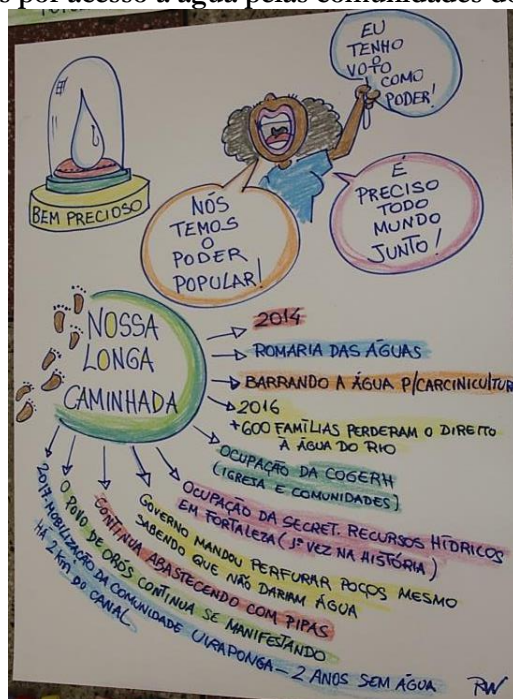 s por acesso à água pelas comunidades do
EU
TENHO
O
VOTO
COMO
PODER!
BEM PRECIOSO
NÓS
TEMOS
O
PODER
POPULAR!
É
PRECISO
TODO
MUNDO
JUNTO!
NOSSA
LONGA
CAMINHADA
2014
ROMARIA DAS ÁGUAS
BARRANDO A ÁGUA P/CARCINICULTUR
2016
+600 FAMÍLIAS PERDERAM O DIREITO
A ÁGUA DO RIO
OCUPAÇÃO DA COGERH
(IGREJA E COMUNIDADES)
OCUPAÇÃO DA SECRET. RECURSOS HÍDRICOS
EM FORTALEZA (1ª VEZ NA HISTÓRIA)
GOVERNO MANDOU PERFURAR POÇOS MESMO
SABENDO QUE NÃO DARIAM ÁGUA
CONTINUA ABASTECENDO COM PIPAS
O POVO DE ORÓS CONTINUA SE MANIFESTANDO
2017-MOBILIZAÇÃO DA COMUNIDADE UIRAPONGA - 2 ANOS SEM ÁGUA
HÁ 2 KM DO CANAL
RW